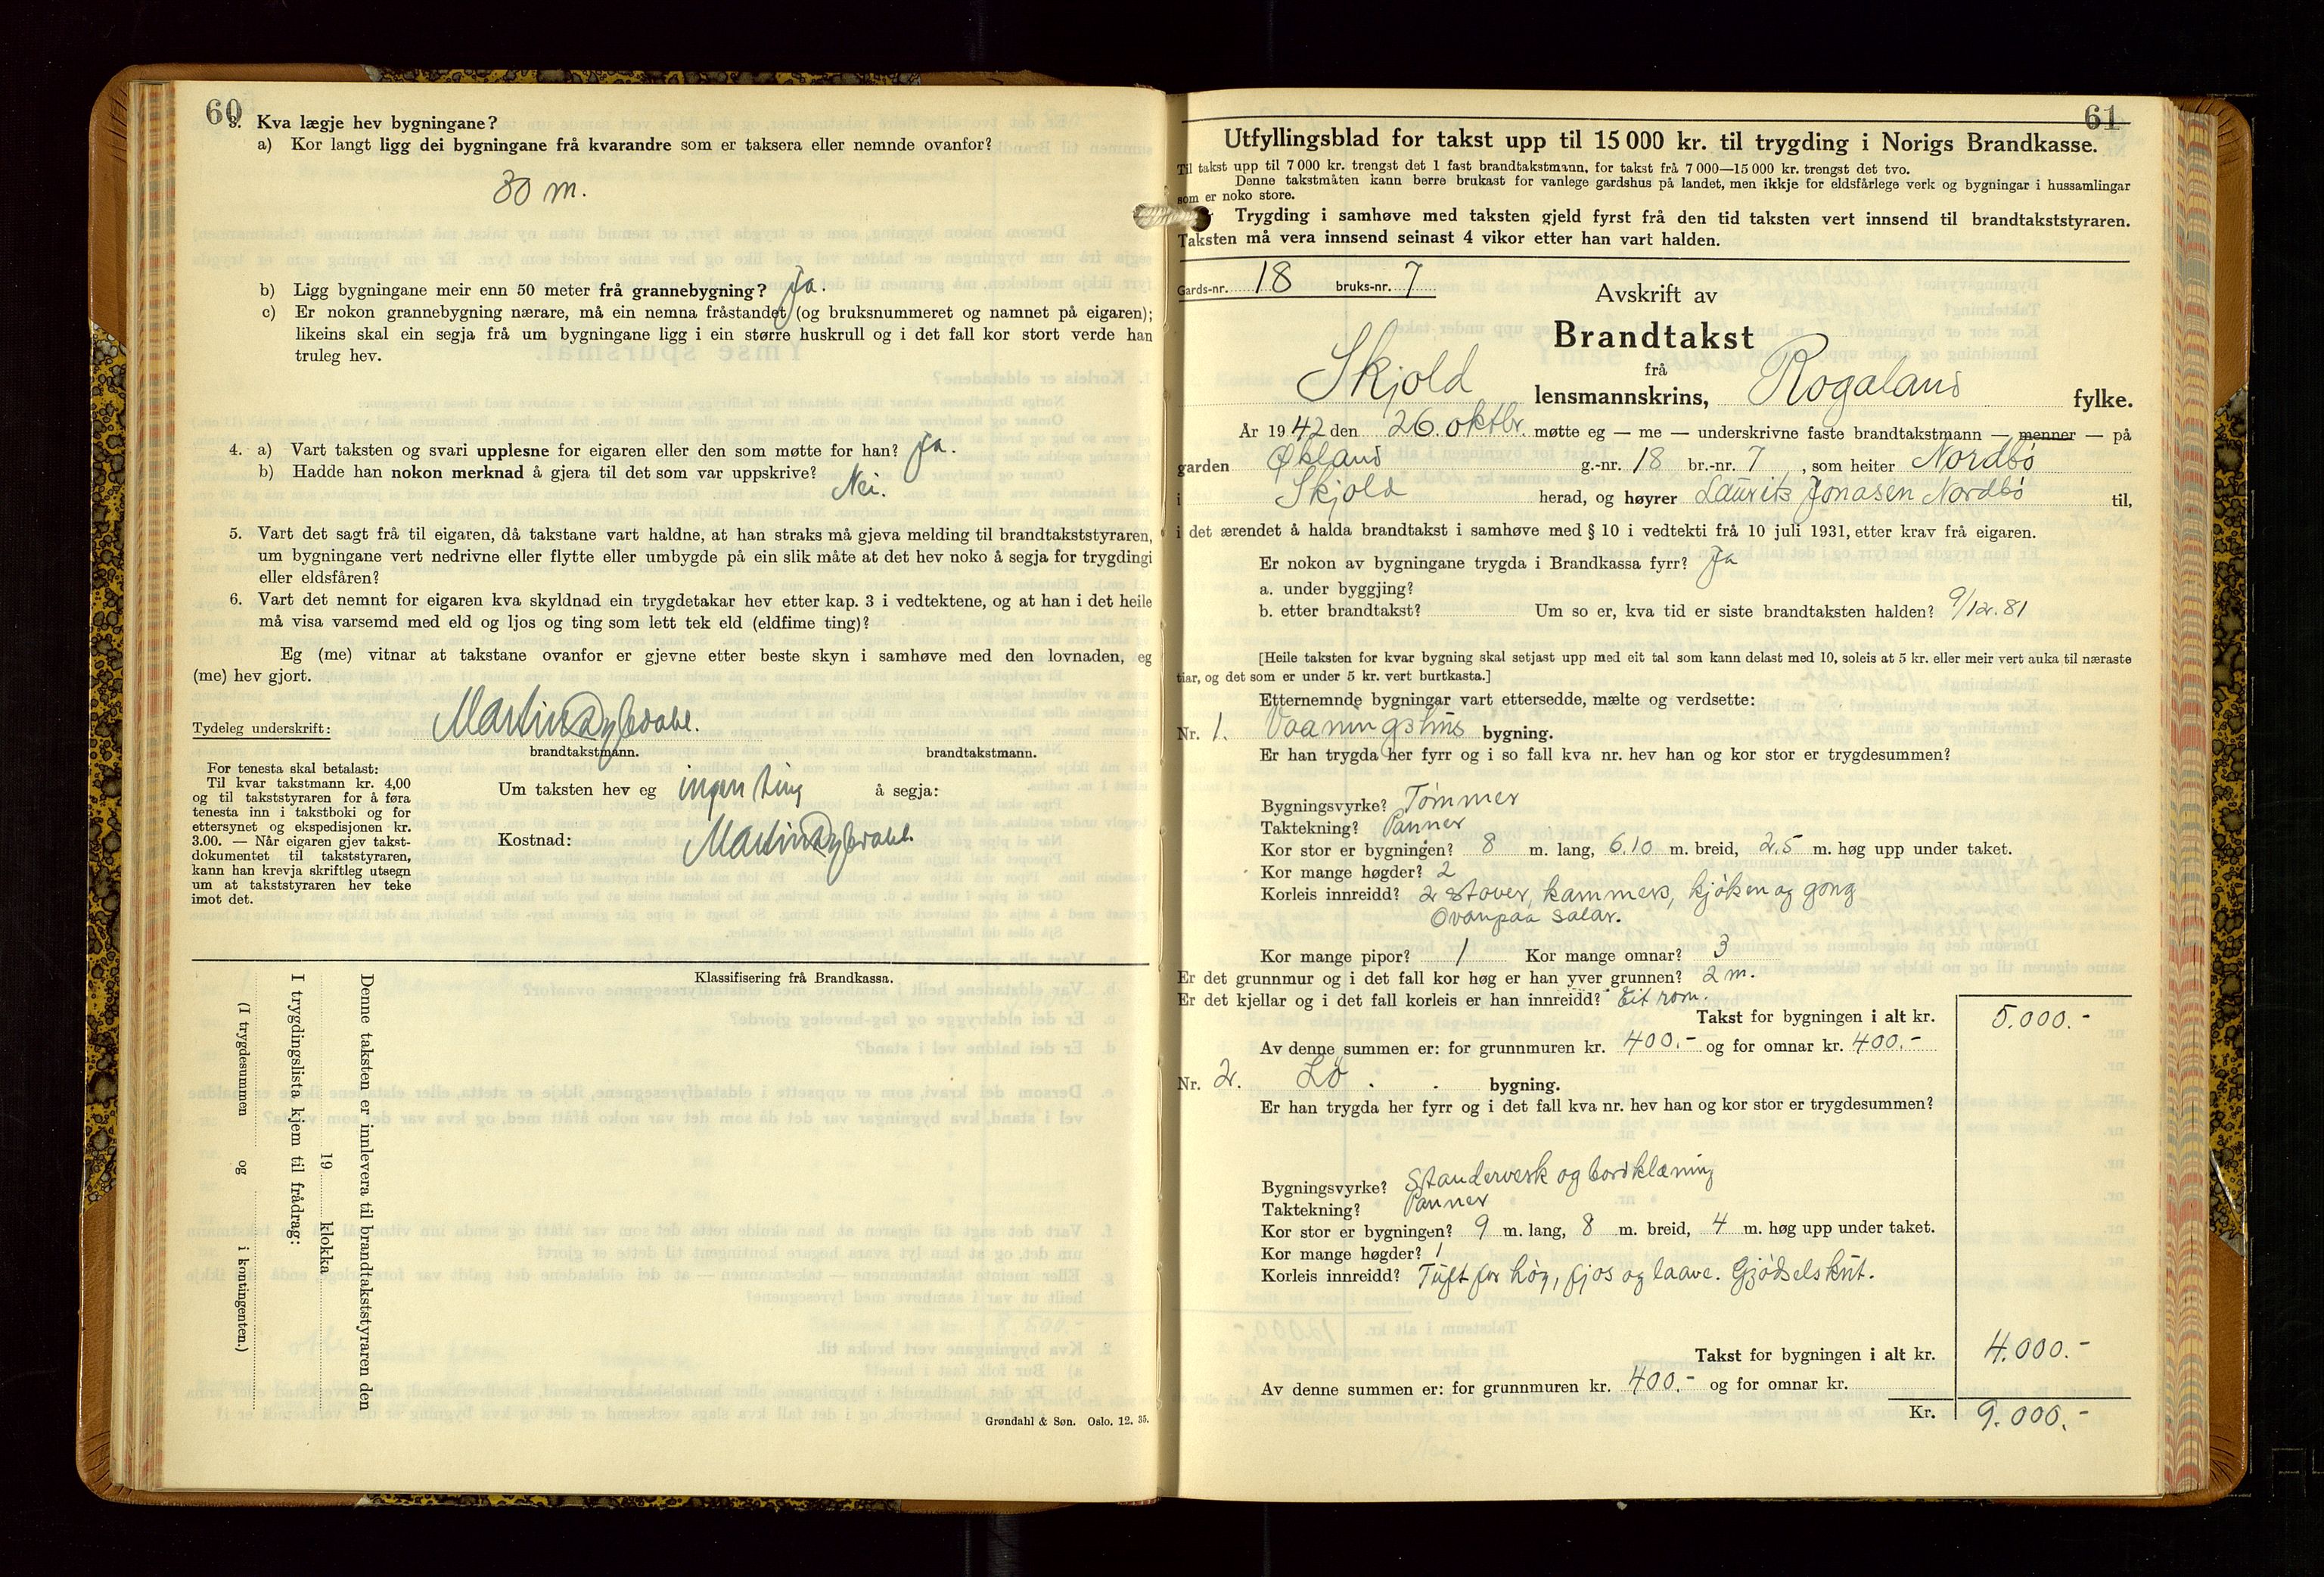 60
3. Kva lægje hev bygningane?
a) Kor langt ligg dei bygningane frå kvarandre som er taksera eller nemnde ovanfor?
30 m.
b) Ligg bygningane meir enn 50 meter frå grannebygning? Ja.
c) Er nokon grannebygning nærare, må ein nemna fråstandet (og bruksnummeret og namnet på eigaren);
likeins skal ein segja frå um bygningane ligg i ein større huskrull og i det fall kor stort verde han
truleg hev.
4. a) Vart taksten og svari upplesne for eigaren eller den som møtte for han? Ja.
b) Hadde han nokon merknad å gjera til det som var uppskrive? Nei.
5. Vart det sagt frå til eigaren, då takstane vart haldne, at han straks må gjeva melding til brandtakststyraren,
um bygningane vert nedrivne eller flytte eller umbygde på ein slik måte at det hev noko å segja for trygdingi
eller eldsfåren?
6. Vart det nemnt for eigaren kva skyldnad ein trygdetakar hev etter kap. 3 i vedtektene, og at han i det heile
må visa varsemd med eld og ljos og ting som lett tek eld (eldfime ting)?
Eg (me) vitnar at takstane ovanfor er gjevne etter beste skyn i samhøve med den lovnaden, eg
(me) hev gjort.
Tydeleg underskrift: Martin
brandtakstmann. brandtakstmann.
For tenesta skal betalast:
Til kvar takstmann kr. 4,00
og til takststyraren for å føra
tenesta inn i takstboki og for
ettersynet og ekspedisjonen kr.
3.00. — Når eigaren gjev takst-
dokumentet til takststyraren,
kann han krevja skriftleg utsegn
um at takststyraren hev teke
imot det.
Um taksten hev eg ingen ting å segja:
Kostnad: Martin
Klassifisering frå Brandkassa.
Denne taksten er innlevera til brandtakststyraren den
19 klokka
I trygdingslista kjem til frådrag:
(I trygdesummen og i kontingenten.)
Grøndahl & Søn. Oslo. 12. 35.
61
Utfyllingsblad for takst upp til 15 000 kr. til trygding i Norigs Brandkasse.
Til takst upp til 7 000 kr. trengst det 1 fast brandtakstmann, for takst frå 7 000—15 000 kr. trengst det tvo.
Denne takstmåten kann berre brukast for vanlege gardshus på landet, men ikkje for eldsfårlege verk og bygningar i hussamlingar
som er noko store.
Trygding i samhøve med taksten gjeld fyrst frå den tid taksten vert innsend til brandtakststyraren.
Taksten må vera innsend seinast 4 vikor etter han vart halden.
Gards-nr. 18 bruks-nr. 7
Avskrift av
Brandtakst
frå
Skjold lensmannskrins, Rogaland fylke.
År 1942 den 26. oktbr. møtte eg — me — underskrivne faste brandtakstmann — menner — på
garden Økland g.-nr. 18 br.-nr. 7, som heiter Nordbö
i Skjold herad, og høyrer Laurits Jonasen Nordbö til,
i det ærendet å halda brandtakst i samhøve med § 10 i vedtekti frå 10 juli 1931, etter krav frå eigaren.
Er nokon av bygningane trygda i Brandkassa fyrr? Ja
a. under byggjing?
b. etter brandtakst? Um so er, kva tid er siste brandtaksten halden? 9/12.81
[Heile taksten for kvar bygning skal setjast upp med eit tal som kann delast med 10, soleis at 5 kr. eller meir vert auka til næraste
tiar, og det som er under 5 kr. vert burtkasta.]
Etternemnde bygningar vart ettersedde, mælte og verdsette:
Nr. 1. Vaaningshus bygning.
Er han trygda her fyrr og i so fall kva nr. hev han og kor stor er trygdesummen?
Bygningsvyrke? Tömmer
Taktekning? Panner
Kor stor er bygningen? 8 m. lang, 6.10 m. breid, 2.5 m. høg upp under taket.
Kor mange høgder? 2
Korleis innreidd? 2 stover, kammers, kjöken og gong
Ovanpaa salar.
Kor mange pipor? 1 Kor mange omnar? 3
Er det grunnmur og i det fall kor høg er han yver grunnen? 2 m.
Er det kjellar og i det fall korleis er han innreidd? Eit rom.
Takst for bygningen i alt kr. 5.000.-
Av denne summen er: for grunnmuren kr. 400.- og for omnar kr. 400.-
Nr. 2. Lö bygning.
Er han trygda her fyrr og i det fall kva nr. hev han og kor stor er trygdesummen?
Bygningsvyrke? Standerverk og bordklæning
Taktekning? Panner
Kor stor er bygningen? 9 m. lang, 8 m. breid, 4 m. høg upp under taket.
Kor mange høgder? 1
Korleis innreidd? Tuft for höy, fjos og laave. Gjödselskut.
Takst for bygningen i alt kr. 4.000.-
Av denne summen er: for grunnmuren kr. 400.- og for omnar kr.
Kr. 9.000.-